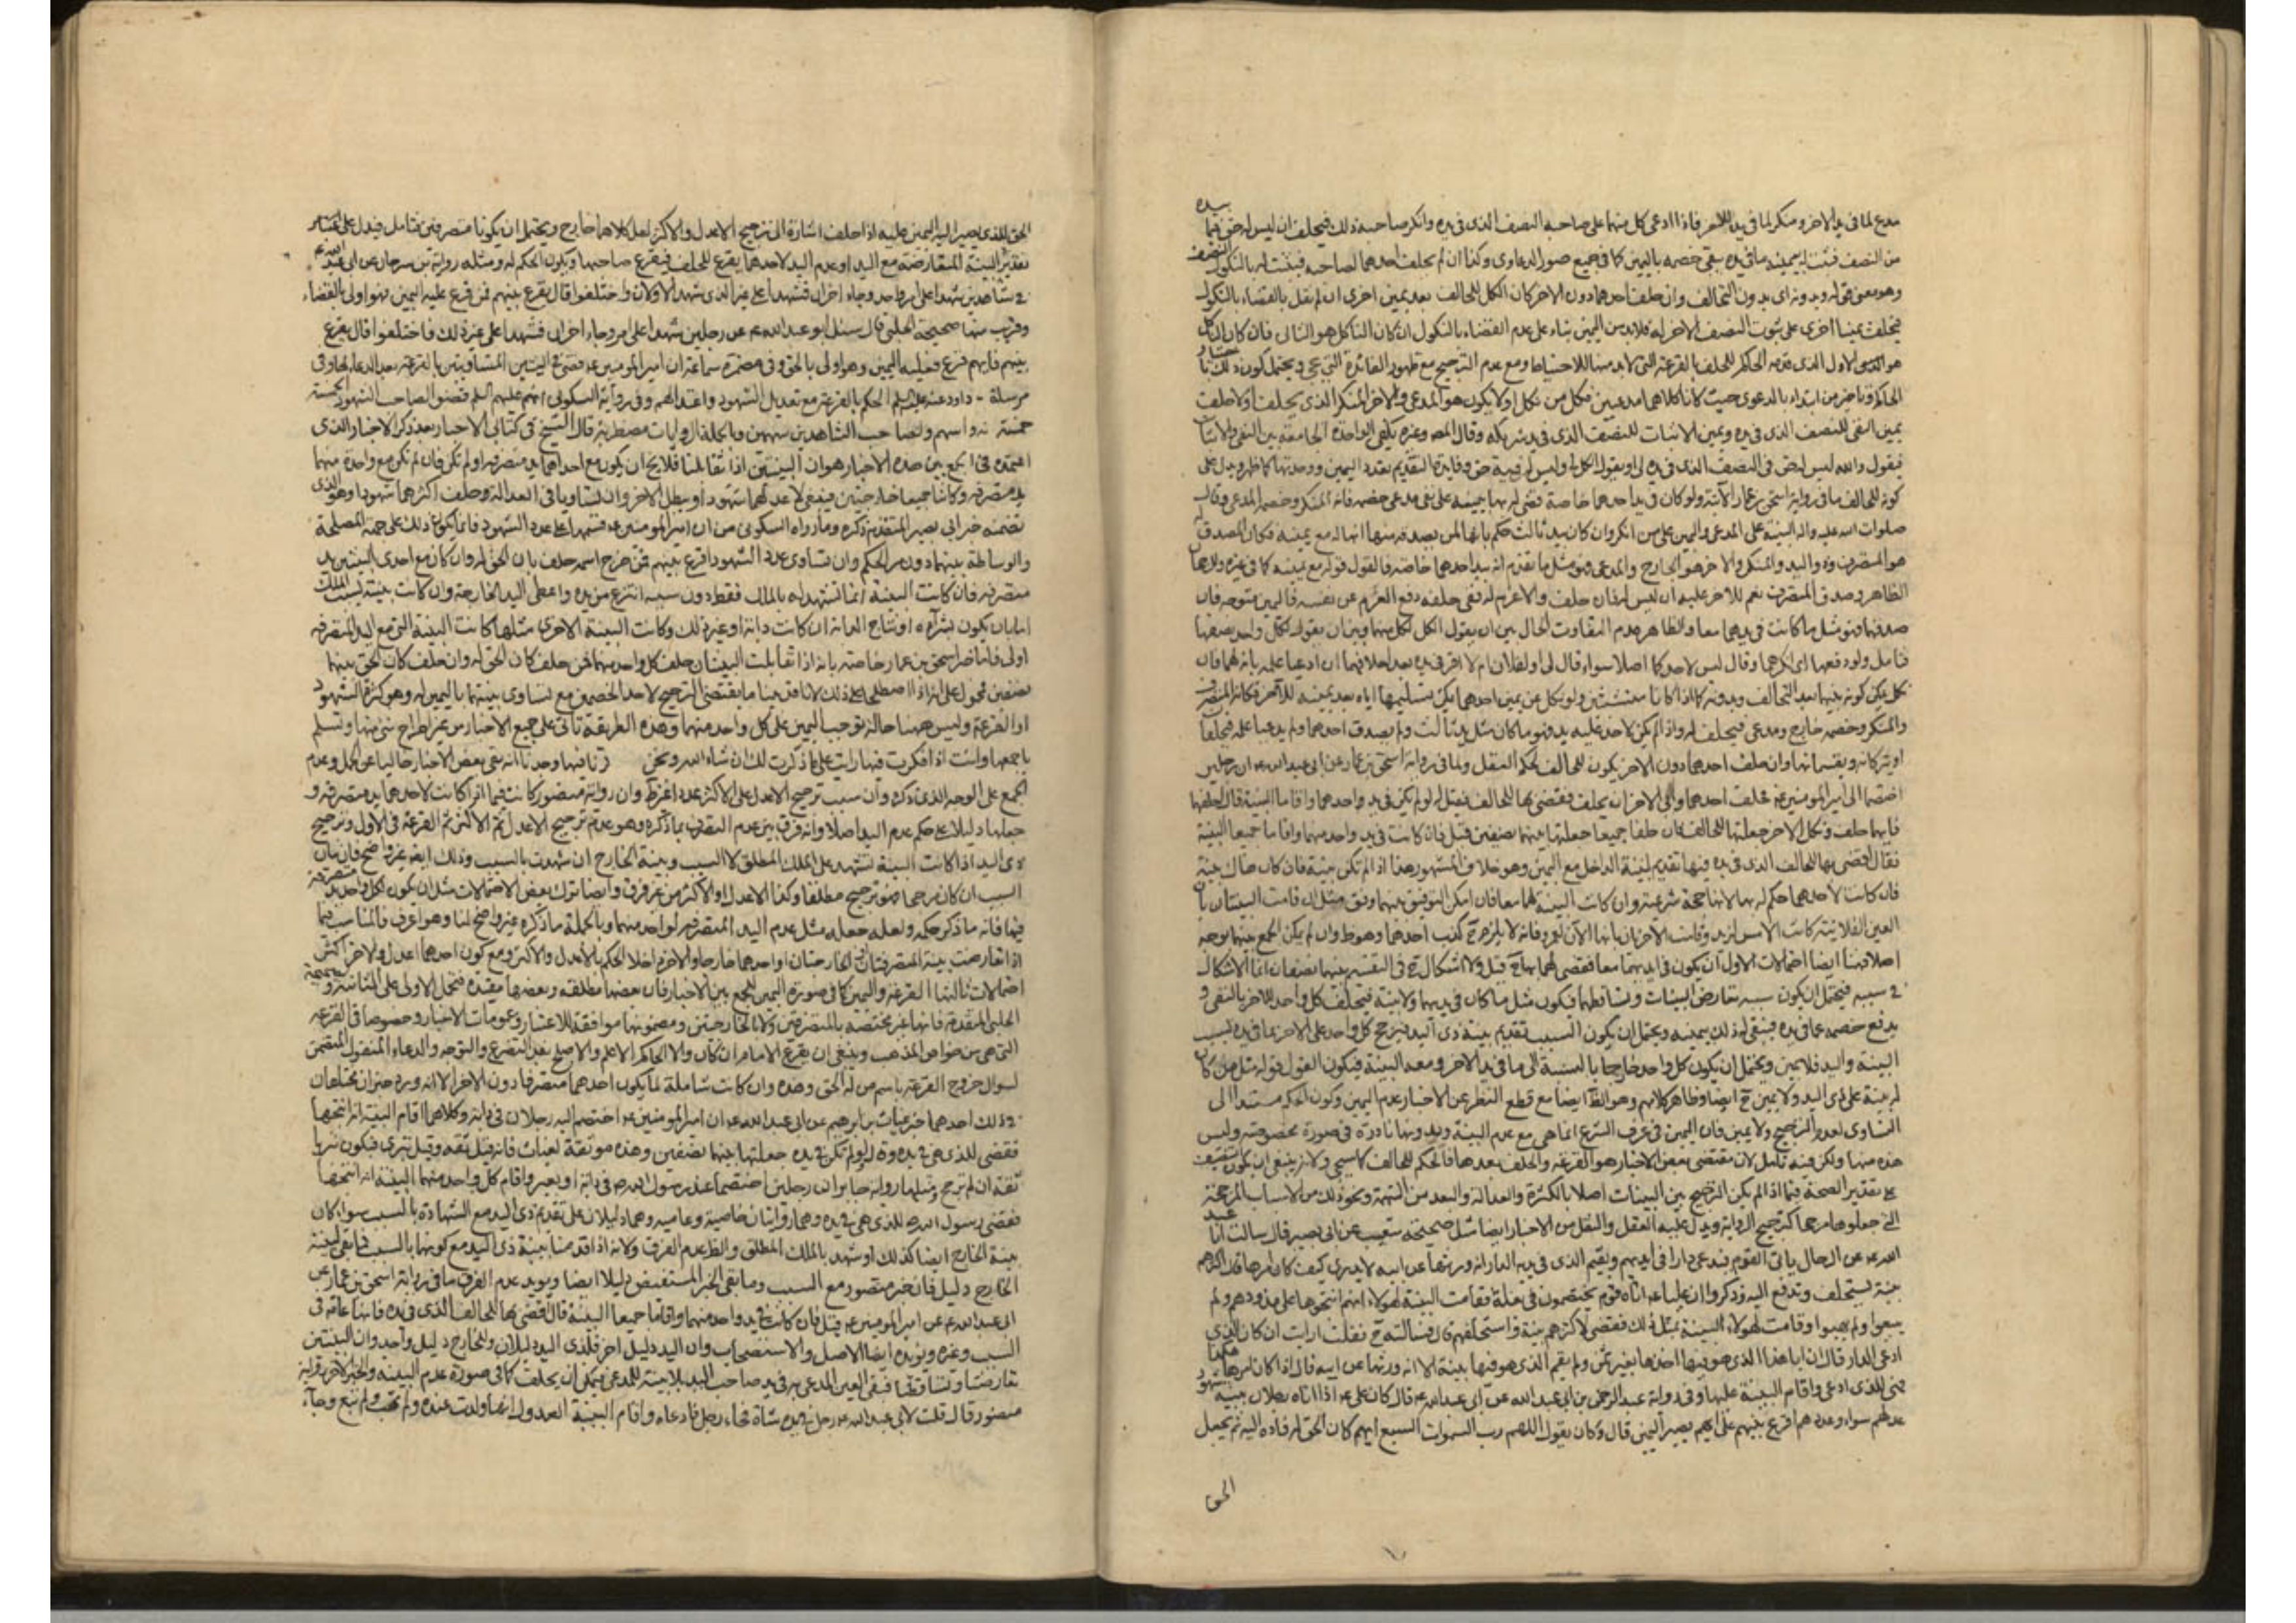 مدع لما في يد الاخر ومنكر لما في يده للاخر فاذا ادعى كل منهما على صاحبه النصف الذي في يده وانكر صاحبه ذلك فيحلف ان ليس له حق فيما بيده
من النصف فثبت له بيمينه ما في يده ببقى خصمه باليمين كما في جميع صور الدعاوى وكذا ان لم يحلف احدهما لصاحبه فيثبت له بالنكول النصف
وهو معنى قوله وبدونه اى بدون التحالف وان حلف احدهما دون الاخر كان الكل للحالف بعد يمين اخرى ان لم نقل بالقضاء بالنكول
فيحلف يمينا اخرى على ثبوت النصف الاخر له فلابد من اليمين بناء على عدم القضاء بالنكول ان كان الناكل هو الثاني فان كان الناكل
هو الاول الذي قدمه الحاكم للحلف بالقرعة التي لابد منها للاحتياط ومع عدم الترجيح مع ظهور الفائدة التي تجي ويحتمل كون ذلك
الحاكم وتاخير من ابتداء بالدعوى حيث كانا كلاهما مدعيين فكل من نكل اولا يكون هو المدعي والاخر المنكر الذي يحلف اولا حلف
يمين النفى للنصف الذي في يده ويمين الاثبات للنصف الذي في يد شريكه وقال المص وغيره يكفى الواحدة الجامعة بين النفى والاثبات
فيقول والله ليس له حق في النصف الذي في يده لى او يقول الكل لى وليس له فيه حق وفايدة التقديم تعدد اليمين ووحدتها كما ظهر ويدل على
كونه للحالف ما في رواية اسحق بن عمار الآتية ولو كان في يد احدهما خاصة قضى له بها بيمينه على نفى مدعى خصمه فانه المنكر وخصمه المدعي وقال
صلوات الله عليه واله البينة على المدعي واليمين على من انكر وان كان بيد ثالث حكم بانها لمن يصدقه منهما انها له مع يمينه فكان المصدق له
هو المتصرف وذو اليد والمنكر والاخر هو الخارج والمدعي فهو مثل ما تقدم انه بيد احدهما خاصة فالقول قوله مع يمينه كما في غيره
الظاهر وصدق المتصرف نعم للاخر عليه ان ليس له فان حلف والا غرم له ففى حلفه دفع الغرم عن نفسه فاليمين متوجه فان
صدقهما فهو مثل ما كانت في يدهما معا والظاهر عدم التفاوت الحال بين ان يقول الكل لكل منهما وبين ان يقول لكل واحد نصفها
فتامل ولو دفعهما اى انكرهما وقال ليس لاحدكما اصلا سواء قال لى او لفلان ام لا اقر في يده بعد احلافهما ان ادعيا علمه بانه لهما فان
نكل يمكن كونه بينهما بعد التحالف وبدونه كما اذا كانا متشبثين ولو نكل عن يمين احدهما يمكن تسليمها اياه بعد يمينه للآخر فكانه المتصرف
والمنكر وخصمه خارج ومدعي فيحلف له واذ لم يكن لاحد عليه يد فهو ما كان مثل يد ثالث ولم يصدق احدهما ولم يدعيا علمه فيحلفا
او يتركانه ويقسمانها وان حلف احدهما دون الاخر يكون للحالف لحكم العقل ولما في رواية اسحق بن عمار عن ابي عبد الله ع ان رجلين
اختصما الى امير المؤمنين ع فحلف احدهما وابى الاخر ان يحلف فقضى بها للحالف فقيل له لو لم يكن في يد واحد منهما واقاما البينة قال احلفهما
فايهما حلف ونكل الاخر جعلتها للحالف فان حلفا جميعا جعلتها بينهما نصفين قيل فان كانت في يد واحد منهما واقاما جميعا البينة
فقال اقضى بها للحالف الذي في يده فيها تقديم لبينة الداخل مع اليمين وهو خلاف المشهور هذا اذا لم تكن بينة فان كان هناك بينة
فان كانت لاحدهما حكم له بها لانها حجة شرعية وان كانت البينة لهما معا فان امكن التوفيق بينهما وفق مثل ان قامت البينتان بان
العين الفلانية كانت الامس لزيد وقامت الاخرى بانها الآن لعمرو فانه لا يلزم ح كذب احدهما وهو ظ وان لم يكن الجمع بينهما بوجه
اصلا فهنا ايضا احتمالات الاول ان يكون في ايديهما معا فقضى لهما بها ح قيل ولا اشكال ح في التقسيم بينهما بنصفان انما الاشكال
في سببه فيحتمل ان يكون سببه تعارض البينات وتساقطهما فيكون مثل ما كان في يديهما ولا بينة فيحلف كل واحد للاخر بالنفى و
يدفع خصمه عما في يده فيبقى له ذلك بيمينه ويحتمل ان يكون السبب تقديم بينة ذي اليد فيرجح كل واحد على الاخر بما في يده بسبب
البينة واليد فلا يمين ويحتمل ان يكون كل واحد خارجا بالنسبة الى ما في يد الاخر ومعه البينة فيكون القول قوله مثل من كان
له بينة على ذي اليد ولا يمين ح ايضا وظاهر كلامهم وهو الظ ايضا مع قطع النظر عن الاخبار عدم اليمين وكون الحكم مستندا الى
التساوى لعدم الترجيح ولا يمين فان اليمين في عرف الشرع انما هي مع عدم البينة وبدونها نادرة في صورة مخصوصة وليس
هذه منها ولكن فيه تامل لان مقتضى بعض الاخبار هو القرعة والحلف بعدها فالحكم للحالف كما سيجي ولانه ينبغى ان يكون
على تقدير الصحة فيما اذا لم يكن الترجيح بين البينات اصلا بالكثرة والعدالة والبعد من التهمة ونحو ذلك من الاسباب المرجحة
التي جعلوها مرجحا كترجيح الرواية ويدل عليه العقل والنقل من الاخبار ايضا مثل صحيحة شعيب عن ابي بصير قال سالت ابا عبد
الله ع عن الرجال ياتى القوم فيدعي دارا في ايديهم ويقيم الذي في يده الدار انه ورثها عن ابيه لا يدري كيف كان امرها فقال اكثرهم
بينة يستحلف وتدفع اليه وذكر ان عليا ع اتاه قوم يختصمون في بغلة فقامت البينة لهولاء انهم انتجوها على مذودهم ولم
يبيعوا ولم يهبوا وقامت لهولاء البينة بمثل ذلك فقضى لاكثرهم بينة واستحلفهم قال فسالته ح فقلت ارايت ان كان الذي
ادعى الدار قال ان ابا هذا الذي هو فيها اخذها بغير ثمن ولم يقم الذي هو فيها بينة الا انه ورثها عن ابيه قال اذا كان امرها هكذا
فهي للذي ادعى واقام البينة عليها وفي رواية عبد الرحمن بن ابي عبد الله عن ابي عبد الله ع قال كان علي ع اذا اتاه رجلان ببينة شهود
عدلهم سواء وعددهم اقرع بينهم على ايهم يصير اليمين قال وكان يقول اللهم رب السموات السبع ايهم كان الحق له فاده اليه ثم يجعل
الحق
الحق للذي يصير اليه اليمين عليه اذا حلف اشارة الى ترجيح الاعدل والاكثر لعل كلاهما خارج ويحتمل ان يكونا متصرفين فتامل فيدل على اعتبار
تقدير البينة المتعارضة مع اليد او عدم اليد لاحدهما يقرع للحلف فيقرع صاحبها ويكون الحكم له ومثله رواية بن سرحان عن ابي عبد الله ع
في شاهدين شهدا على امر واحد وجاء اخران فشهدا على غير الذي شهد الاولان واختلفوا قال يقرع بينهم فمن قرع عليه اليمين فهو اولى بالقضاء
وقريب منها صحيحة الحلبي قال سئل ابو عبد الله ع عن رجلين شهدا على امر وجاء اخران فشهدا على غير ذلك فاختلفوا قال يقرع
بينهم فايهم قرع فعليه اليمين وهو اولى بالحق وفي مضمرة سماعة ان امير المؤمنين ع قضى في البينتين المتساويتين بالقرعة بعد الدعاء لها وفي
مرسلة داود عنه عليه السلام الحكم بالقرعة مع تعديل الشهود واعتدالهم وفي رواية السكوني انهم عليهم السلم قضوا لصاحب الشهود الخمسة
خمسة اسهم ولصاحب الشاهدين سهمين وبالجملة الروايات مضطربة قال الشيخ في كتابي الاخبار بعد ذكر الاخبار الذي
اعتمده في الجمع بين هذه الاخبار هو ان البينتين اذا تقابلتا فلا يخ ان يكون مع احداهما يد متصرفه او لم تكن فان لم تكن مع واحدة منهما
يد متصرفه وكانتا جميعا خارجتين فينبغي لاعدلهما شهودا ويبطل الاخر وان تساويا في العدالة وحلف اكثرهما شهودا وهو الذي
تضمنه خبر ابي بصير المتقدم ذكره وما رواه السكوني من ان امير المؤمنين ع قسمها على عدد الشهود فانما يكون ذلك على جهة المصلحة
والوساطة بينهما دون مر الحكم وان تساوى عدد الشهود اقرع بينهم فمن خرج اسمه حلف بان الحق له وان كان مع احدى البينتين يد
متصرفه فان كانت البينة انما تشهد له بالمالك فقط دون سببه انتزع من يده واعطى اليد الخارجة وان كانت بينته بسبب الملك
اما بان يكون بشرائه او نتاج الدابة ان كانت دابة او غير ذلك وكانت البينة الاخرى مثلها كانت البينة التي مع اليد المتصرفه
اولى فاما خبر اسحق بن عمار خاصة بانه اذا تقابلت البينتان حلف كل واحد منهما فمن حلف كان الحق له وان حلفا كان الحق بينهما
نصفين فمحمول على انه اذا اصطلحا على ذلك لانا قد بينا ما يقتضي الترجيح لاحد الخصمين مع تساوى بينتهما باليمين له وهو كثرة الشهود
او القرعة وليس ههنا حالة توجب اليمين على كل واحد منهما وهذه الطريقة تاتى على جميع الاخبار من غير اطراح شئ منها وتسلم
باجمعها وانت اذا فكرت فيها رايت على ما ذكرت لك ان شاء الله ونحن قد تاقيناها وجدنا انه بقى بعض الاخبار خاليا عن الحمل وعدم
الجمع على الوجه الذي ذكره وان سبب ترجيح الاعدل على الاكثر عددا غير ظ وان رواية منصور كانت فيما اذا كانت لاحدهما يد متصرفه و
جعلها دليلا على حكم عدم اليد اصلا وانه فرق بين عدم التصرف بما ذكره وهو عدم ترجيح الاعدل ثم الاكثر ثم القرعة في الاول وترجيح
ذي اليد اذا كانت البينة تشهد على الملك المطلق لا السبب وبينة الخارج ان شهدت بالسبب وذلك ايضا غير واضح فان بيان
السبب ان كان مرجحا فهو ترجيح مطلقا وكذا الاعدل والاكثر من غير فرق وايضا ترك بعض الاحتمالات مثل ان يكون لكل واحد يد متصرفة
فيها فانه ما ذكر حكمه ولعله جعله مثل عدم اليد المتصرفه لواحد منهما وبالجملة ما ذكره غير واضح لنا وهو اعرف فالمناسب فيما
اذا تعارضت بينة المتصرفتان او الخارجتان او احدهما خارجا والاخر داخلا الحكم بالاعدل والاكثر ومع كون احدهما اعدل والاخر اكثر
احتمالات ثالثها القرعة واليمين كما في صورة اليمين للجمع بين الاخبار فان بعضها مطلقه وبعضها مقيدة فتحمل الاولى على الثانية و صحيحة
الحلبي المتقدمة فانها غير مختصة بالمتصرفين ولا بالخارجتين ومضمونها موافقة للاعتبار وعمومات الاخبار وخصوصا في القرعة
التي هي من خواص المذهب وينبغي ان يقرع الامام ان كان والا الحاكم الاعلم والاصلح بعد التضرع والتوجه والدعاء المنقول المتضمن
لسوال خروج القرعة باسم من له الحق وحده وان كانت شاملة لما يكون احدهما متصرفا دون الاخر الا انه ورد خبران يختلفان
في ذلك احدهما خبر غياث بن ابرهيم عن ابي عبد الله ع ان امير المؤمنين ع اختصم اليه رجلان في دابة وكلاهما اقام البينة انه انتجها
فقضى للذي هي في يده وقال لو لم تكن في يده جعلتها بينهما نصفين وهذه موثقة لغياث فانه قيل ثقه وقيل بترى فيكون بتريا
ثقة ان لم ترجح ومثلها رواية جابر ان رجلين اختصما عند رسول الله ص في دابة او بعير واقام كل واحد منهما البينة انه انتجها
فقضى رسول الله ص للذي هي في يده وهما روايتان خاصية وعامية وهما دليلان على تقديم ذي اليد مع الشهادة بالسبب سواء كان
بينة الخارج ايضا كذلك او شهد بالملك المطلق والظ عدم الفرق ولانه اذا قدمنا بينة ذي اليد مع كونها بالسبب فما بقى لبينة
الخارج دليل فان خبر منصور مع السبب وما بقى الخبر المستفيض دليلا ايضا ويويد عدم الفرق ما في رواية اسحق بن عمار عن
ابي عبد الله ع عن امير المؤمنين ع قيل فان كانت في يد واحد منهما واقاما جميعا البينة قال اقضى بها للحالف الذي في يده فانها عامة في
السبب وغيره ويؤيده ايضا الاصل والاستصحاب وان اليد دليل اخر فلذي اليد دليلان وللخارج دليل واحد وان البينتين
تعارضتا وتساقطتا فيبقى العين المدعى به في يد صاحب اليد بلا بينة للمدعي فيمكن ان يحلف كما في صورة عدم البينه والخبر الاخر رواية
منصور قال قلت لابي عبد الله ع رجل في يده شاة فجاء رجل فادعاه واقام البينة العدول انها ولدت عنده ولم تهب ولم تبع وجاء